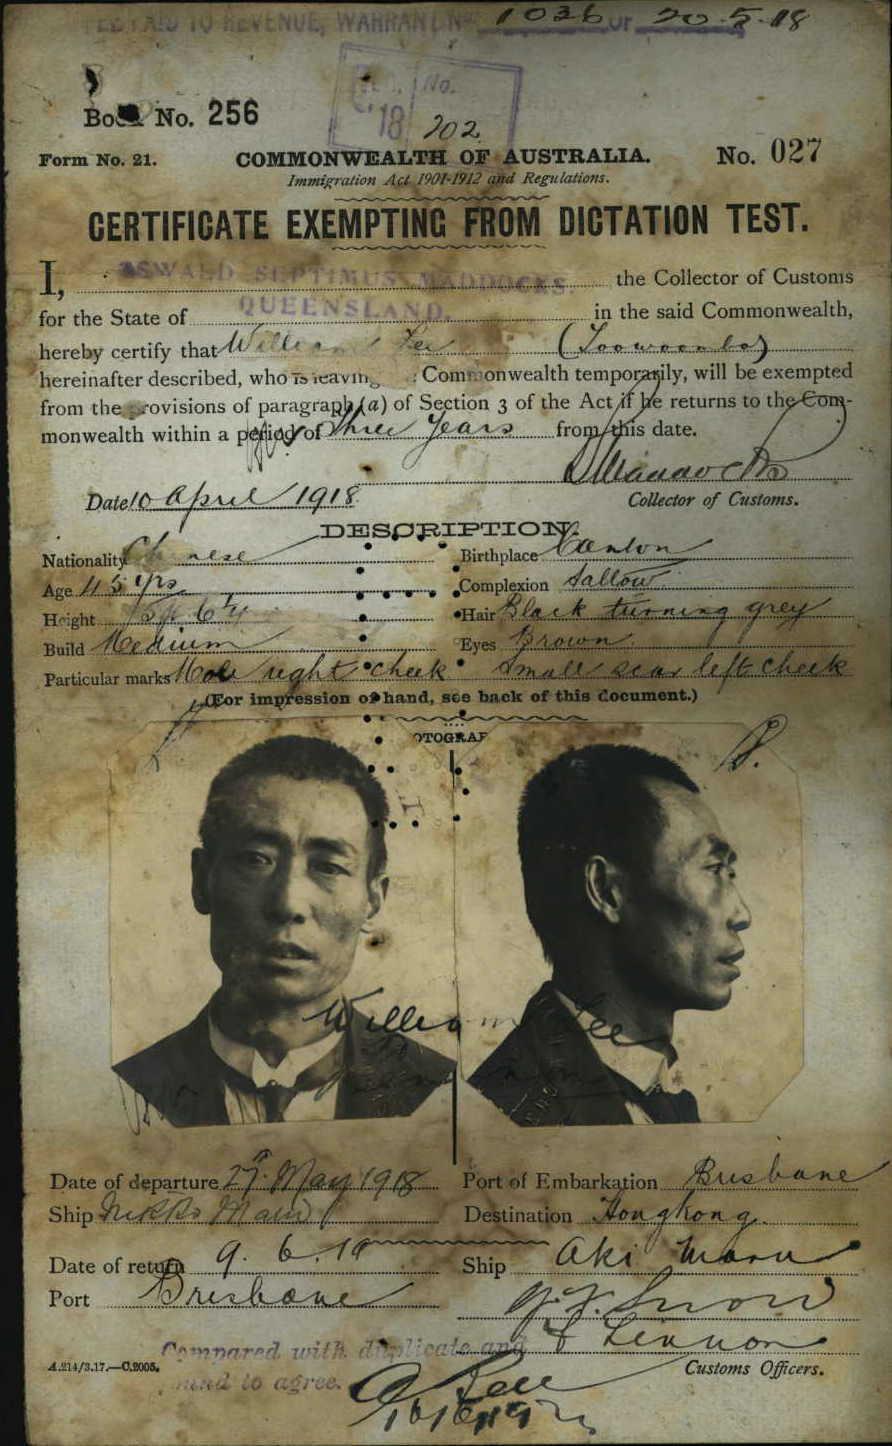 PAID TO REVENUE, WARRANT No. 1036 OF 20.5.18
No.
18
Book No. 256
202
Form No. 21. COMMONWEALTH OF AUSTRALIA. No. 027
Immigration Act 1901-1912 and Regulations.
CERTIFICATE EXEMPTING FROM DICTATION TEST.
I, OSWALD SEPTIMUS MADDOCKS. the Collector of Customs
for the State of QUEENSLAND. in the said Commonwealth,
hereby certify that William Lee (Toowoomba)
hereinafter described, who is leaving Commonwealth temporarily, will be exempted
from the provisions of paragraph (a) of Section 3 of the Act if he returns to the Com-
monwealth within a period of Three Years from this date.
Maddocks
Date 10 April 1918 Collector of Customs.
DESCRIPTION.
Nationality Chinese Birthplace Canton
Age 45 yrs Complexion Sallow
Height 5ft 6 Hair Black turning grey
Build Medium Eyes Brown.
Particular marks Mole right cheek Small scar left cheek
(For impression of hand, see back of this document.)
OTOGRAP
William Lee
Date of departure 27 May 1918 Port of Embarkation Brisbane
Ship Nikko Maru Destination Hongkong.
Date of return 9.6.19 Ship Aki Maru
Port Brisbane
Compared with duplicate and
found to agree.
A.214/3.17.—C.2005. Customs Officers.